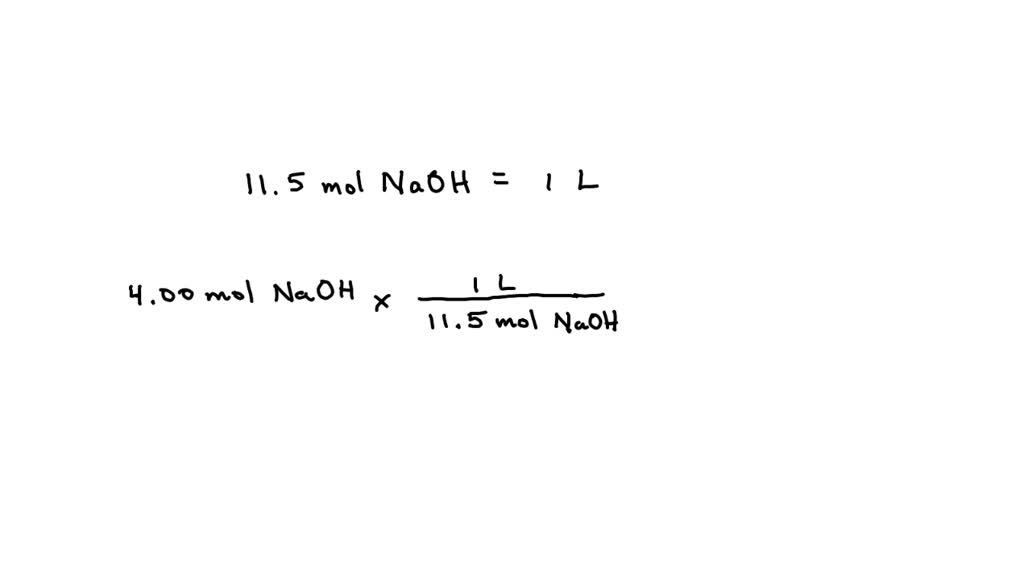 11.5 mol NaOH = 1 L
4.00 mol NaOH x 1 L
11.5 mol NaOH